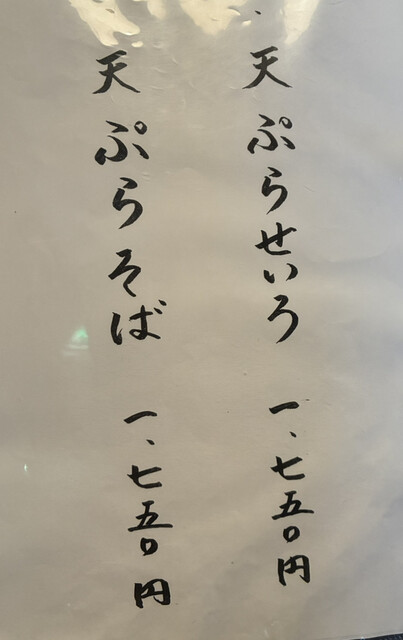 天ぷらせいろ 一、七五〇円
天ぷらそば 一、七五〇円